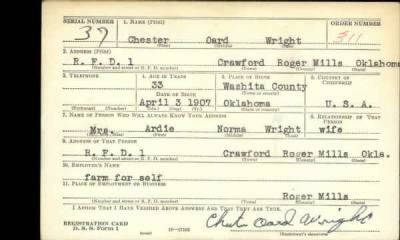 SERIAL NUMBER 1. NAME (Print) ORDER NUMBER
37 Chester Oard Wright 311
(First) (Middle) (Last)
2. ADDRESS (Print)
R.F.D.1 Crawford Roger Mills Oklahoma
(Number and street or R. F. D. number) (Town) (County) (State)
3. TELEPHONE 4. AGE IN YEARS 5. PLACE OF BIRTH 6. COUNTRY OF CITIZENSHIP
33 Washita County
DATE OF BIRTH
April 3 1907 Oklahoma U.S.A.
(Exchange) (Number) (Mo.) (Day) (Yr.) (State or country)
7. NAME OF PERSON WHO WILL ALWAYS KNOW YOUR ADDRESS 8. RELATIONSHIP OF THAT PERSON
Mrs. Ardie Norma Wright wife
(Mr., Mrs., Miss) (First) (Middle) (Last)
9. ADDRESS OF THAT PERSON
R.F.D.1 Crawford Roger Mills Okla.
(Number and street or R. F. D. number) (Town) (County) (State)
10. EMPLOYER'S NAME
farm for self
11. PLACE OF EMPLOYMENT OR BUSINESS
Roger Mills
(Number and street or R. F. D. number) (Town) (County) (State)
I AFFIRM THAT I HAVE VERIFIED ABOVE ANSWERS AND THAT THEY ARE TRUE.
REGISTRATION CARD
D. S. S. Form 1 Chester Oard Wright
(Registrant's signature)